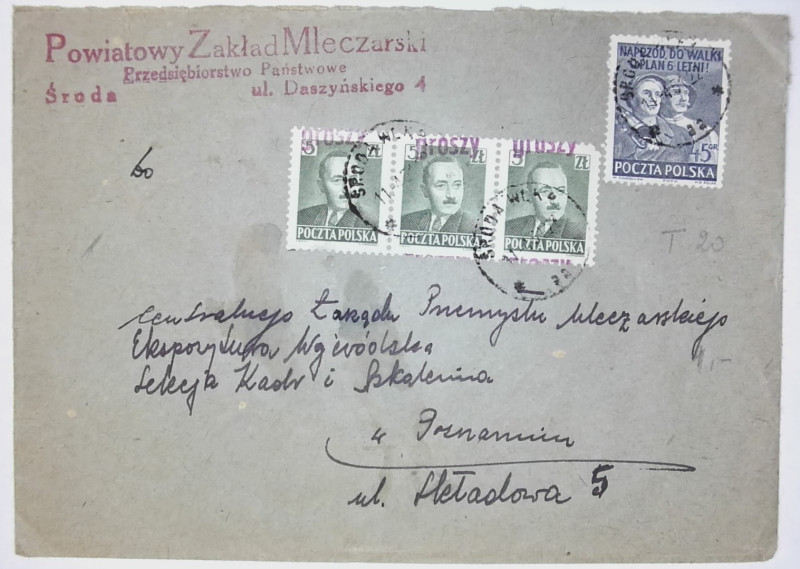 Powiatowy Zakład Mleczarski
Przedsiębiorstwo Państwowe
Środa ul. Daszyńskiego 4
NAPRZÓD DO WALKI
O PLAN 6 LETNI!
45 GR
POCZTA POLSKA
groszy groszy groszy
5 5 ZŁ 5 ZŁ
POCZTA POLSKA POCZTA POLSKA POCZTA POLSKA
ŚRODA WLKP ŚRODA WLKP
Do
T 20
Centralnego Zarządu Przemysłu Mleczarskiego
Ekspozytura Wojewódzka
1,-
Sekcja Kadr i Szkolenia
w Poznaniu
ul. Składowa 5